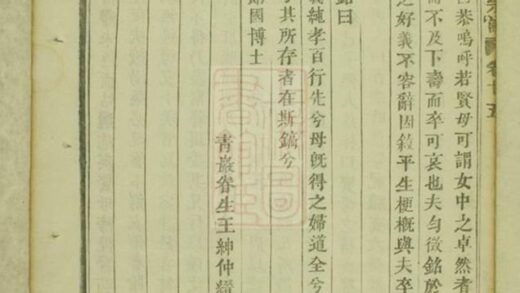 卷十五
恭嗚呼若賢母可謂女中之卓然者
而不及下壽而卒可哀也夫勻徵銘於
之好義不容辭因敘平生梗概與夫卒
銘曰
純孝百行先兮母既得之婦道全兮
其所存者在斯鐫兮
國博士
青巖眷生王紳仲縉